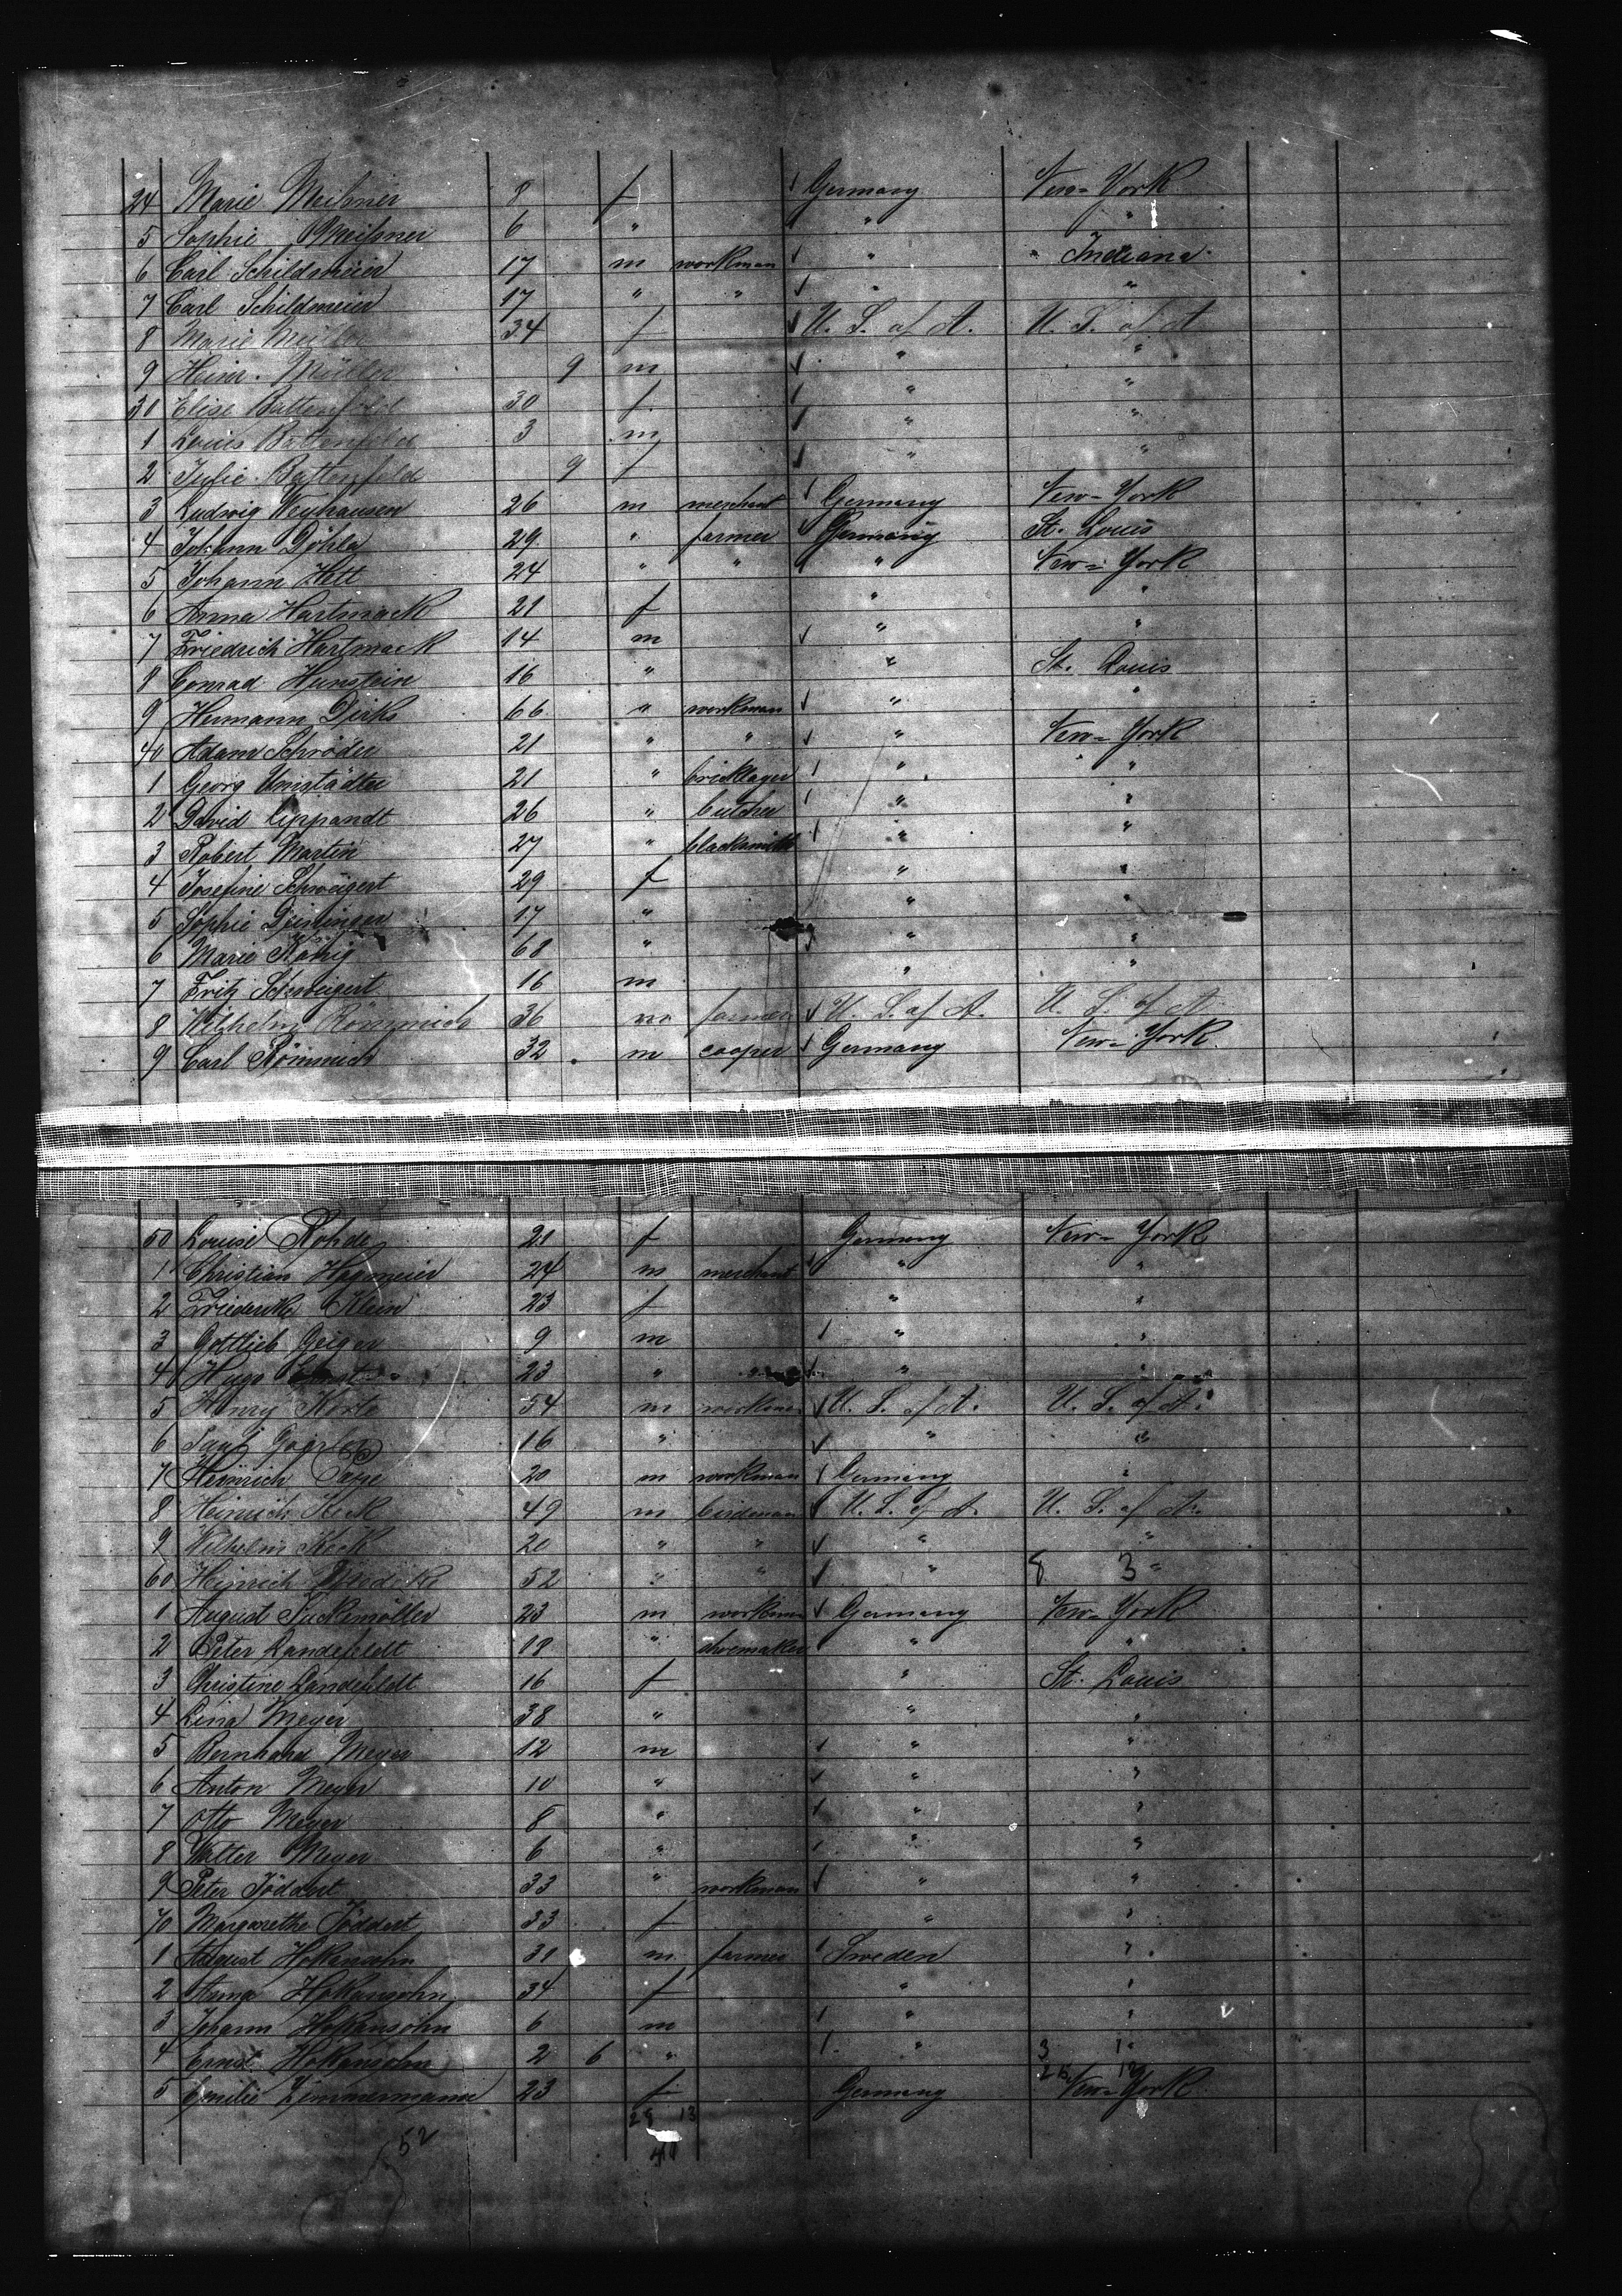 24 Marie Meissner 8 f Germany New-York
5 Sophie Meissner 6 " " "
6 Carl Schildmeier 17 m workman " " Indiana
7 Carl Schildmeier 17 " " " "
8 Marie 34 f U. S. of A. U. S. of A
9 Heinr. Müller 9 m " "
30 Elise Battenfeld 30 f " "
1 Louis Battenfeld 3 m " "
2 Julie Battenfeld 9 f " "
3 Ludwig Weyhausen 26 m merchant Germany New-York
4 Johann Döhla 29 " farmer Germany St. Louis
5 Johann Hett 24 " " " New-York
6 Anna Hartmack 21 f " "
7 Friedrich Hartmack 14 m " "
8 Conrad Hunstein 16 " " St. Louis
9 Hermann Dirks 66 " workman " "
40 Adam Schröder 21 " " " New-York
1 Georg Umstädter 21 " bricklayer " "
2 David Lippandt 26 " butcher " "
3 Robert Martin 27 " blacksmith " "
4 Josefine Schweigert 29 f " "
5 Sophie Deininger 17 " " "
6 Marie König 68 " " "
7 Fritz Schweigert 16 m " "
8 Wilhelm Römmich 36 m farmer U. S. of A. U. S. of A.
9 Carl Römmich 32 m cooper Germany New-York
50 Louise Rohde 21 f Germany New-York
1 Christian Hagemeier 24 m merchant " "
2 Friederike Klein 23 f " "
3 Gottlieb Geiger 9 m " "
4 Hugo Ernst 23 " " "
5 Henry Korte 54 m workman U. S. of A. U. S. of A.
6 16 " " "
7 Heinrich Pape 20 m workman Germany "
8 Heinrich Keck 49 m birdman U. S. of A. U. S. of A.
9 Wilhelm Keck 20 " " " "
60 Heinrich 52 " " " 8 3 "
1 August Suckemöller 23 m workman Germany New-York
2 Peter Landefeldt 18 " shoemaker " "
3 Christine Landefeldt 16 f " St. Louis
4 Lina Meyer 38 " " "
5 Bernhard Meyer 12 m " "
6 Anton Meyer 10 " " "
7 Otto Meyer 8 " " "
8 Walter Meyer 6 " " "
9 Peter Jöddert 33 " workman " "
70 Margarethe Jöddert 33 f " "
1 August Hokansohn 31 m farmer Sweden "
2 Anna Hokansohn 34 f " "
3 Johann Hokansohn 6 m " "
4 Ernst Hokansohn 2 6 " " 3 1
5 Emilie Zimmermann 23 f Germany New-York
28 13
52 41